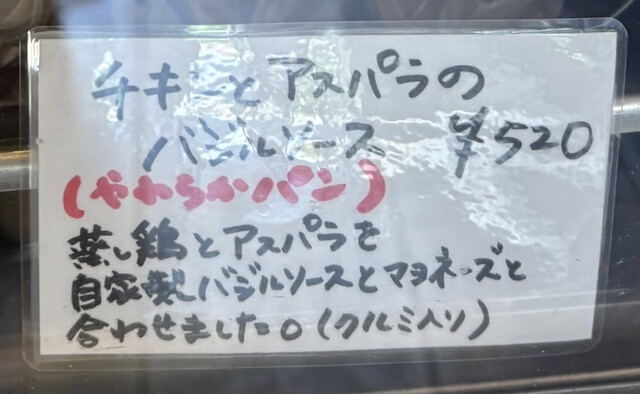 チキンとアスパラの
バジルソース ¥520
(やわらかパン)
蒸し鶏とアスパラを
自家製バジルソースとマヨネーズと
合わせました。(クルミ入り)